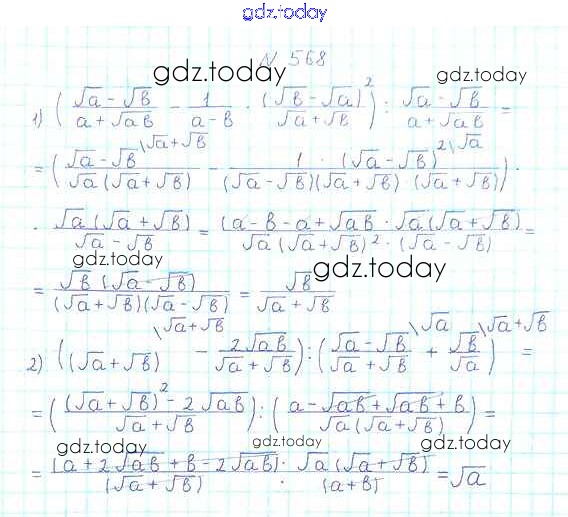 gdz.today
N 568
gdz.today gdz.today
1) ( (√a - √b)/(a + √ab) - 1/(a - b) · (√b - √a)²/(√a + √b) ) : (√a - √b)/(a + √ab) =
= ( (√a - √b)\√a+√b/(√a (√a + √b)) - 1 · (√a - √b)² \√a/((√a - √b)(√a + √b) (√a + √b)) ) ·
· √a (√a + √b)/(√a - √b) = (a - b - a + √ab · √a (√a + √b)/(√a (√a + √b)² · (√a - √b) =
gdz.today gdz.today
= √b (√a - √b)/((√a + √b)(√a - √b)) = √b/(√a + √b)
2) ( (√a + √b)\√a+√b - 2√ab/(√a + √b) ) : ( (√a - √b)\√a/(√a + √b) + √b\√a+√b/√a ) =
= ( ((√a + √b)² - 2√ab)/(√a + √b) ) : ( (a - √ab + √ab + b)/(√a (√a + √b) ) =
gdz.today gdz.today gdz.today
= (a + 2√ab + b - 2√ab) · √a (√a + √b)/((√a + √b) · (a + b)) = √a